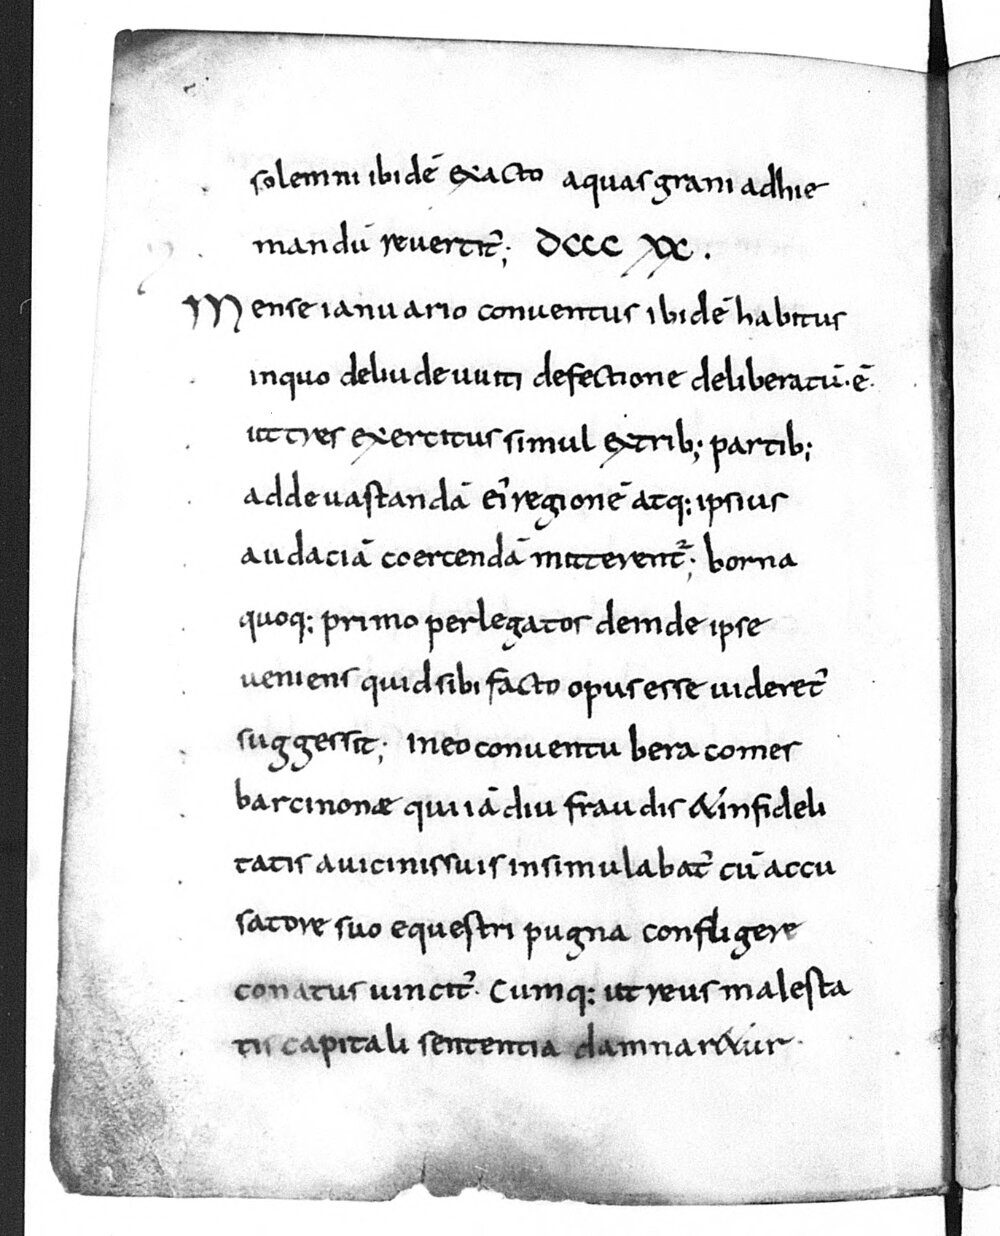 solemni ibidē exacto aquasgrani adhie
mandū reuertit̄; DCCC XX.
Mense ianuario conuentus ibidē habitus
inquo deliudeuuiti defectione deliberatū·ē·
ut tres exercitus simul extrib; partib;
addeuastandā ei regionē atq; ipsius
audaciā coercendā mitterent̄; borna
quoq; primo perlegatos deinde ipse
ueniens quid sibi facto opus esse uideret̄
suggessit; ineo conuentu bera comes
barcinonæ qui iā diu fraudis &infideli
tatis auicinissuis insimulabat̄ cū accu
satore suo equestri pugna confligere
conatus uincit̄· Cumq; ut reus maiesta
tis capitali sententia damnar&ur·